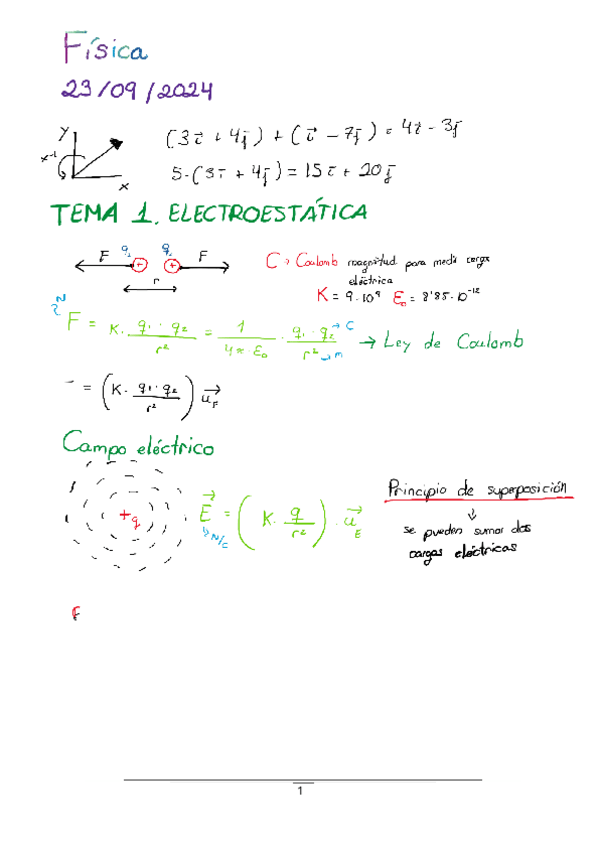 Física
23/09/2024
y
x⁻¹
x
(3i + 4j) + (i - 7j) = 4i - 3j
5·(3i + 4j) = 15i + 20j
TEMA 1. ELECTROESTÁTICA
F q₁ q₂ F
r
C → Coulomb magnitud para medir carga
eléctrica
K = 9·10⁹ ε₀ = 8'85·10⁻¹²
N
F = K · q₁ · q₂ / r² = 1 / 4π · ε₀ · q₁ · q₂ / r² → Ley de Coulomb
C
m
= (K · q₁ · q₂ / r²) u⃗F
Campo eléctrico
+q
E⃗ = (K · q / r²) · u⃗E
N/C
Principio de superposición
↓
se pueden sumar dos
cargas eléctricas
F
1